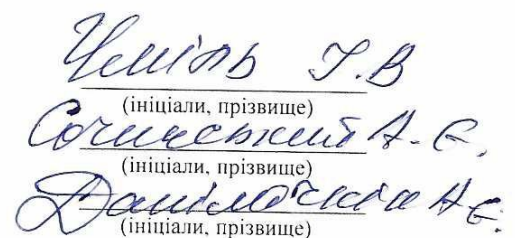 Чміль І.В
(ініціали, прізвище)
Сочинський А.Є.
(ініціали, прізвище)
Данілочкін А.Є.
(ініціали, прізвище)